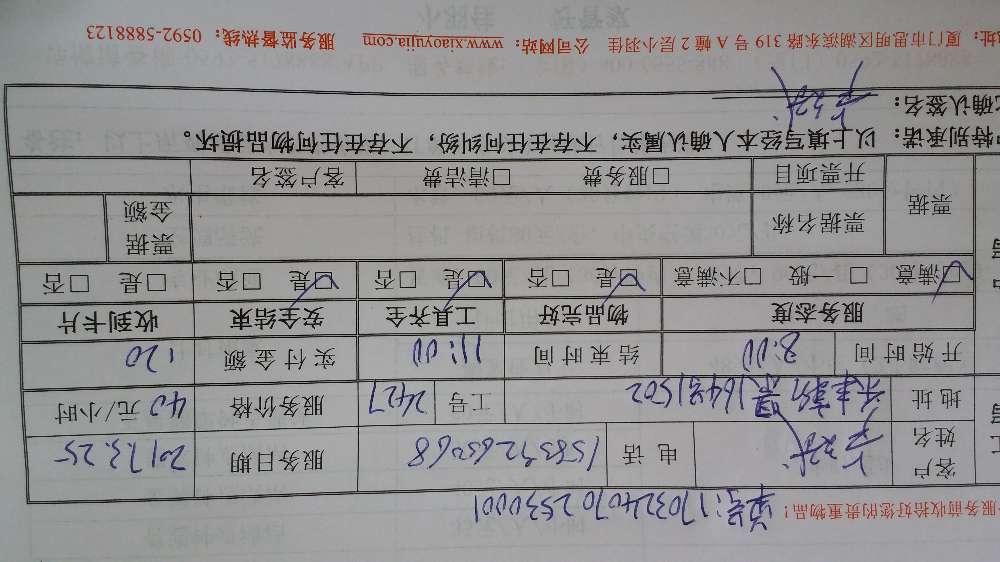 务前收拾好您的贵重物品!
单号:1703240702530001
客户姓名 电话 15859265068 服务日期 2017.3.25
地址 164号1502 工号 2427 服务价格 40元/小时
开始时间 8:00 结束时间 11:00 实付金额 120
服务态度 物品完好 工具齐全 安全结束 收到卡片
☑满意 □一般 □不满意 ☑是 □否 ☑是 □否 ☑是 □否 □是 □否
票据 票据名称 票据金额
开票项目 □服务费 □清洁费 客户签名
特别承诺: 以上填写经本人确认属实,不存在任何纠纷,不存在任何物品损坏。
确认签名:
址:厦门市思明区湖滨东路 319 号 A 幢 2 层小羽佳 公司网站:www.xiaoyujia.com 服务监督热线:0592-5888123